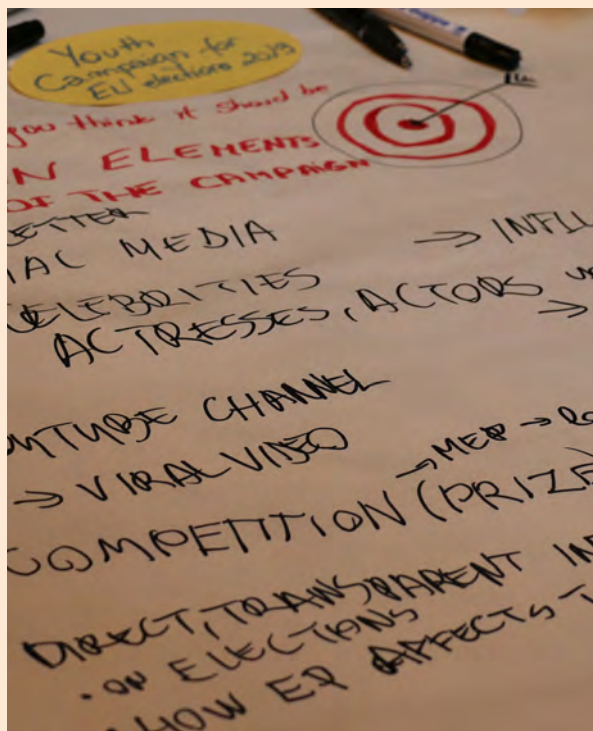 Youth
Campaign for
EU elections 2019
you think it should be
N ELEMENTS
OF THE CAMPAIGN
ETTER
IAL MEDIA → INFLU
CELEBRITIES
ACTRESSES, ACTORS
→
OUTUBE CHANNEL
→ VIRAL VIDEO
→ MEP →
COMPETITION (PRIZE)
DIRECT, TRANSPARENT IN
• ON ELECTIONS
• HOW EP AFFECTS T